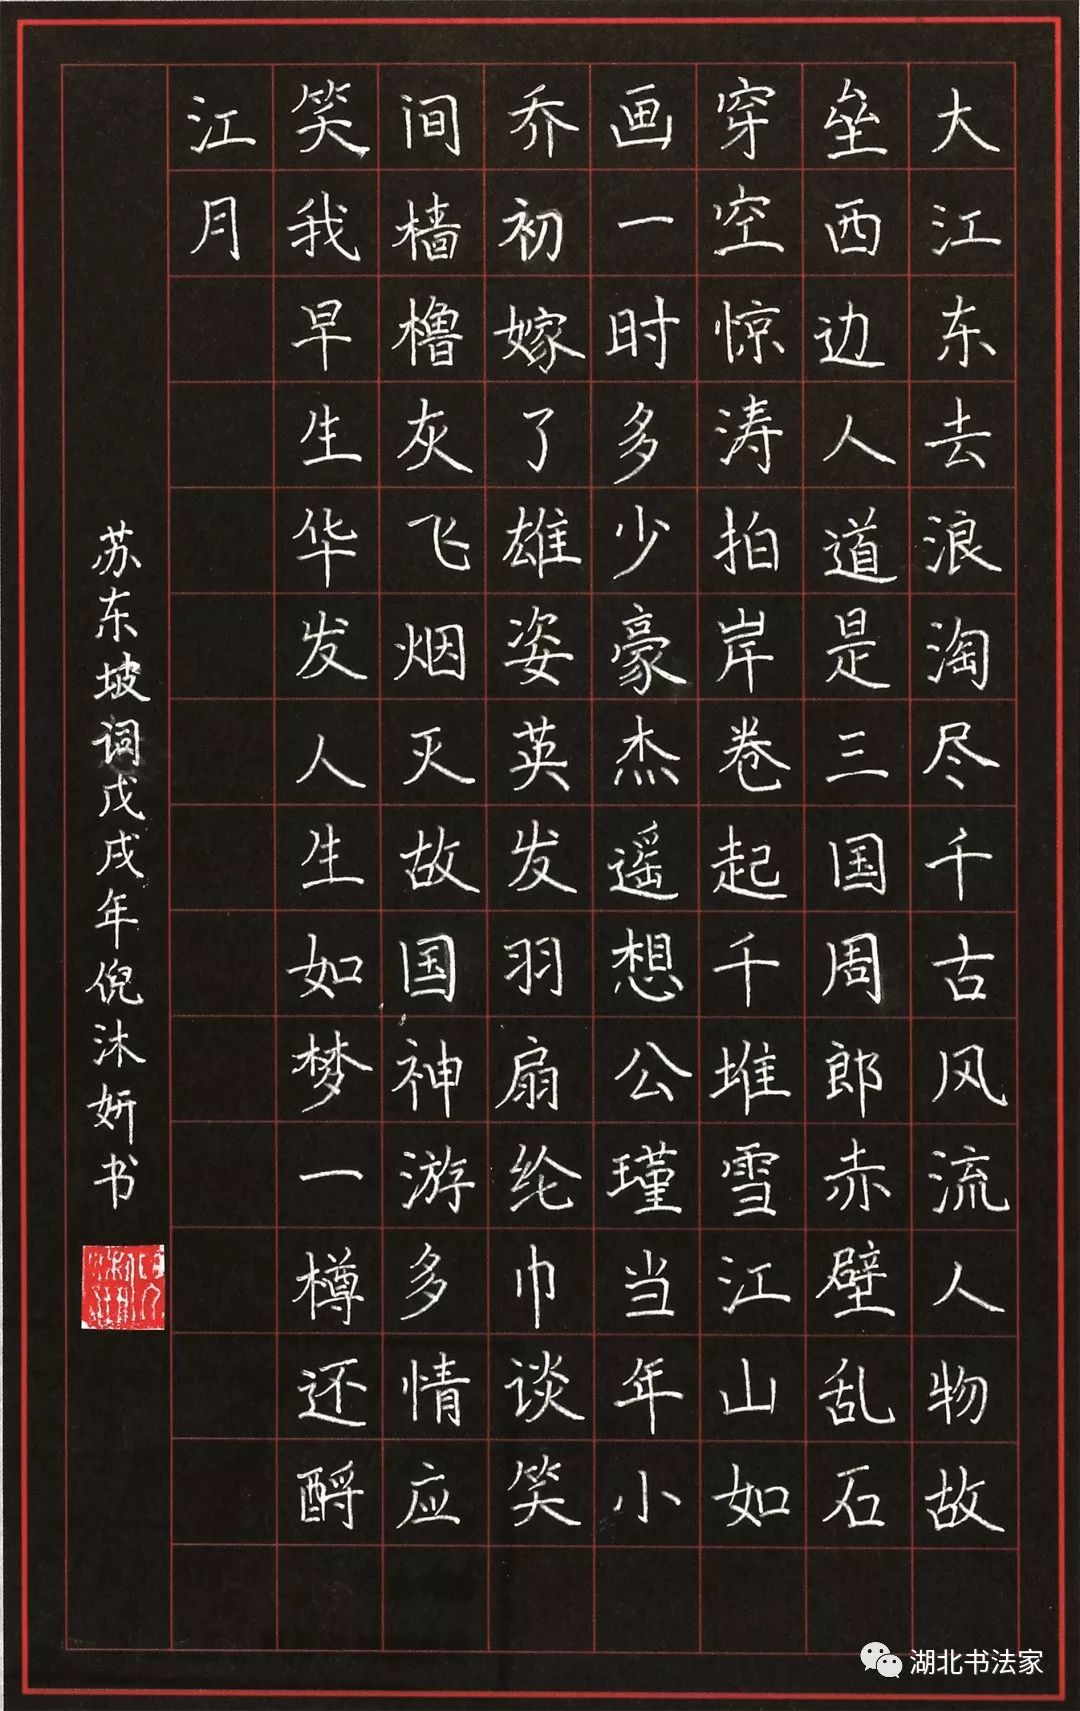 大江东去浪淘尽千古风流人物故
垒西边人道是三国周郎赤壁乱石
穿空惊涛拍岸卷起千堆雪江山如
画一时多少豪杰遥想公瑾当年小
乔初嫁了雄姿英发羽扇纶巾谈笑
间樯橹灰飞烟灭故国神游多情应
笑我早生华发人生如梦一樽还酹
江月
苏东坡词戊戌年倪沐妍书
湖北书法家